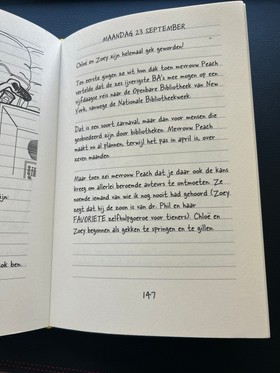 MAANDAG 23 SEPTEMBER
Chloë en Zoey zijn helemaal gek geworden!
Ten eerste gingen ze uit hun dak toen mevrouw Peach
vertelde dat de zes ijverigste BA's mee mogen op een
vijfdaagse reis naar de Openbare Bibliotheek van New
York, vanwege de Nationale Bibliotheekweek.
Dat is een soort carnaval, maar dan voor mensen die
geobsedeerd zijn door bibliotheken. Mevrouw Peach
maakt nu al plannen, terwijl het pas in april is, over
zeven maanden.
Maar toen zei mevrouw Peach dat je daar ook de kans
kreeg om allerlei beroemde auteurs te ontmoeten. Ze
noemde iemand van wie ik nog nooit had gehoord (Zoey
zegt dat hij de zoon is van dr. Phil en haar
FAVORIETE zelfhulpgoeroe voor tieners). Chloë en
Zoey begonnen als gekken te springen en te gillen.
147
ijn:
ook ben.